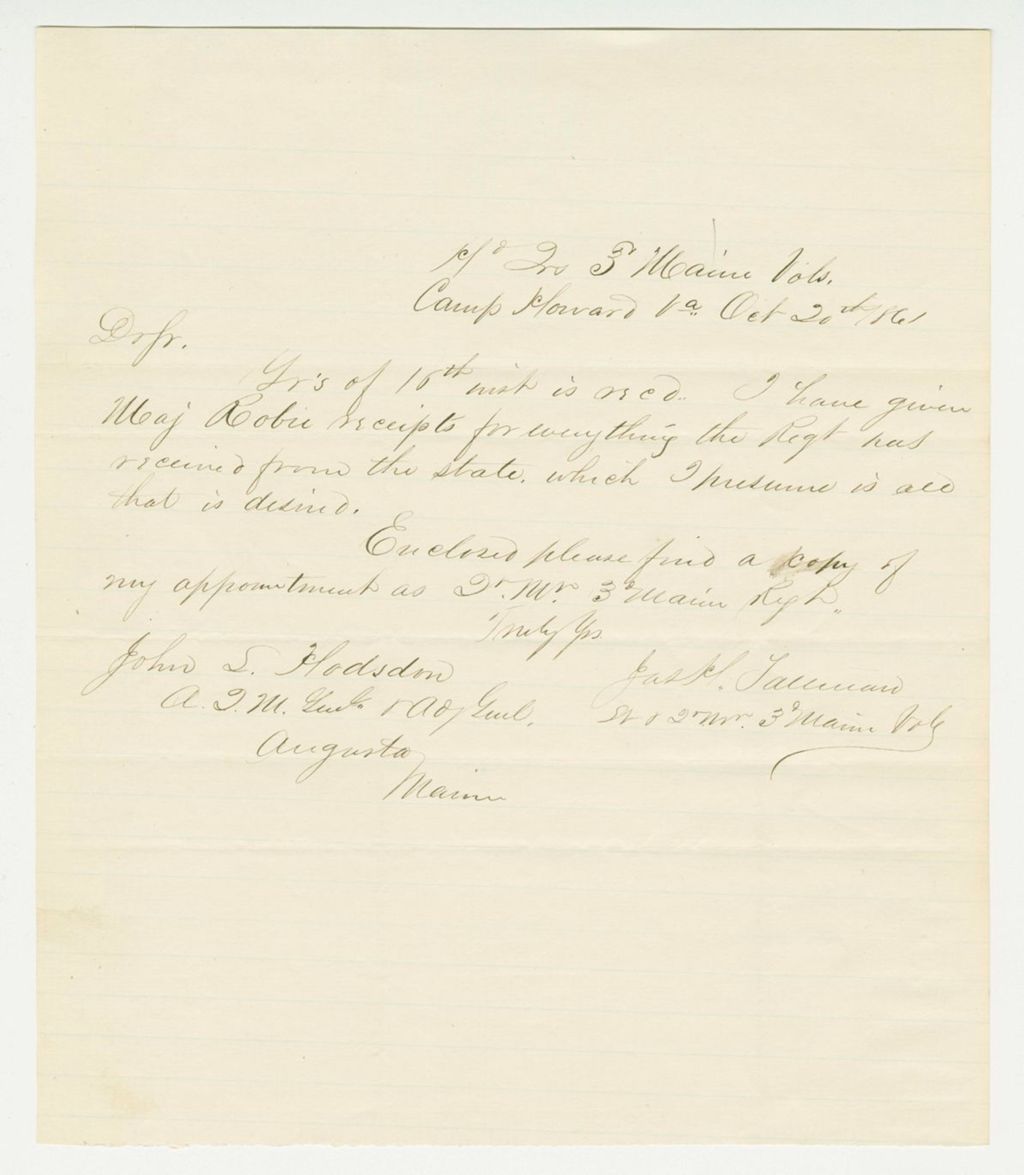 Hd Qrs 3d Maine Vols.
Camp Howard Va. Oct 20th /61
Dr Sr.
Yr's of 16th inst is recd. I have given
Maj Robie receipts for everything the Regt has
received from the state, which I presume is all
that is desired.
Enclosed please find a copy of
my appointment as Qr. Mr. 3d Maine Regt.
Truly Yrs
John L. Hodsdon
A. Q. M. Genl. & Adj Genl.
Augusta
Maine
Jas H. Tallman
Lt & Qr Mr. 3d Maine Vols